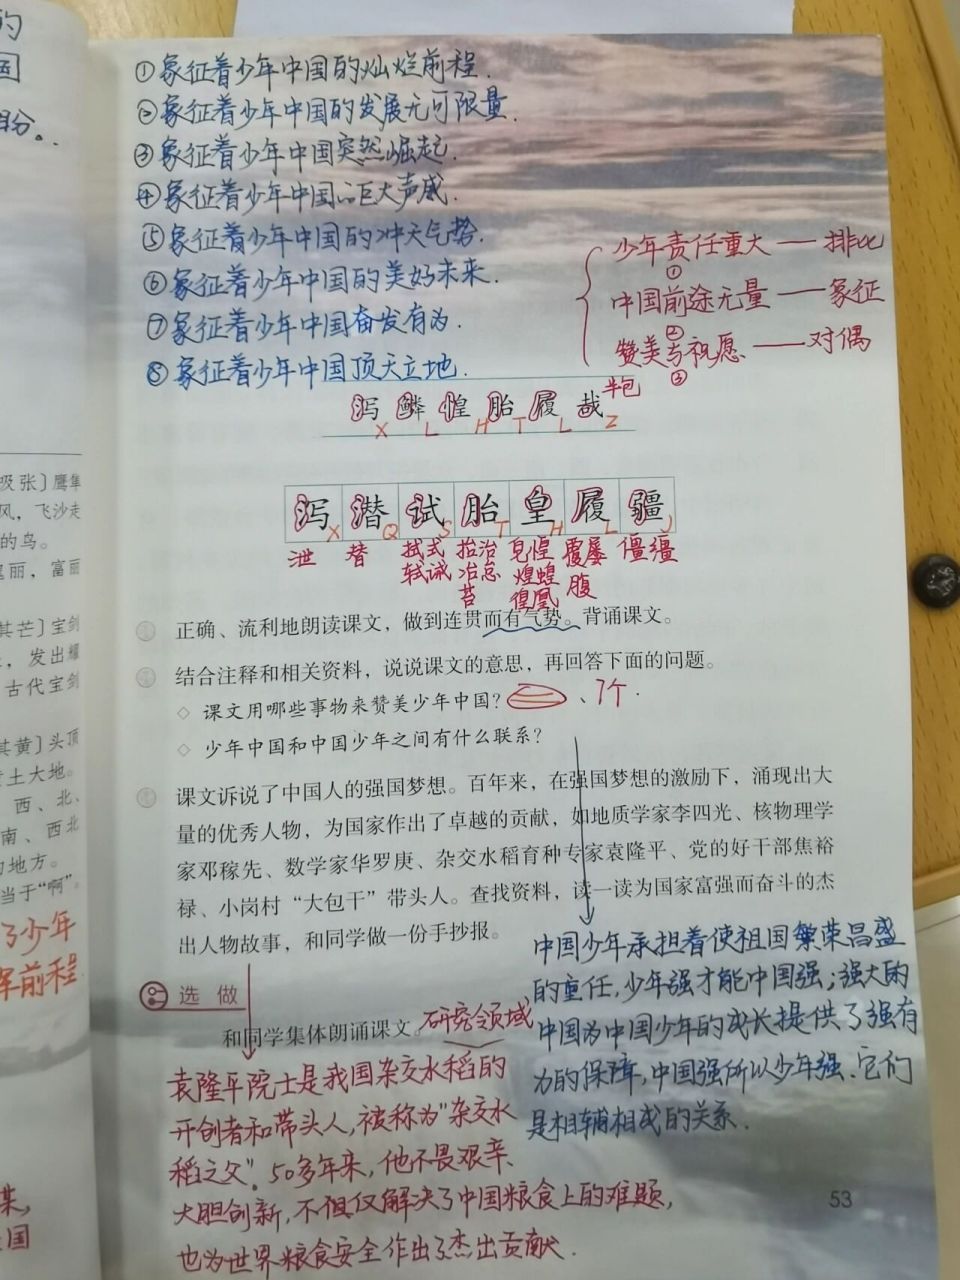 的
国
盼。
①象征着少年中国的灿烂前程.
②象征着少年中国的发展无可限量.
③象征着少年中国突然崛起.
④象征着少年中国的巨大声威.
⑤象征着少年中国的冲天气势.
⑥象征着少年中国的美好未来.
⑦象征着少年中国奋发有为.
⑧象征着少年中国顶天立地.
少年责任重大——排比
①
中国前途无量——象征
②
赞美与祝愿——对偶
③
半包
泻 鳞 惶 胎 履 哉
X L H T L Z
泻 潜 试 胎 皇 履 疆
X Q S T H L J
泄 替 拭式 抬治 見惶 覆屡 僵缰
轼诫 冶怠 煌蝗 腹
苔 徨凰
正确、流利地朗读课文，做到连贯而有气势。背诵课文。
结合注释和相关资料，说说课文的意思，再回答下面的问题。
◇ 课文用哪些事物来赞美少年中国？ 、7个.
◇ 少年中国和中国少年之间有什么联系？
课文诉说了中国人的强国梦想。百年来，在强国梦想的激励下，涌现出大
量的优秀人物，为国家作出了卓越的贡献，如地质学家李四光、核物理学
家邓稼先、数学家华罗庚、杂交水稻育种专家袁隆平、党的好干部焦裕
禄、小岗村“大包干”带头人。查找资料，读一读为国家富强而奋斗的杰
出人物故事，和同学做一份手抄报。
选做
和同学集体朗诵课文。
研究领域
袁隆平院士是我国杂交水稻的
开创者和带头人，被称为“杂交水
稻之父”。50多年来，他不畏艰辛、
大胆创新，不但仅解决了中国粮食上的难题，
也为世界粮食安全作出了杰出贡献.
中国少年承担着使祖国繁荣昌盛
的重任，少年强才能中国强；强大的
中国为中国少年的成长提供了强有
力的保障，中国强所以少年强.它们
是相辅相成的关系.
53
吸张〕鹰隼
风，飞沙走
的鸟。
丽，富丽
其芒〕宝剑
，发出耀
古代宝剑
其黄〕头顶
土大地。
西、北、
南、西北
的地方。
当于“啊”。
了少年
前程
国